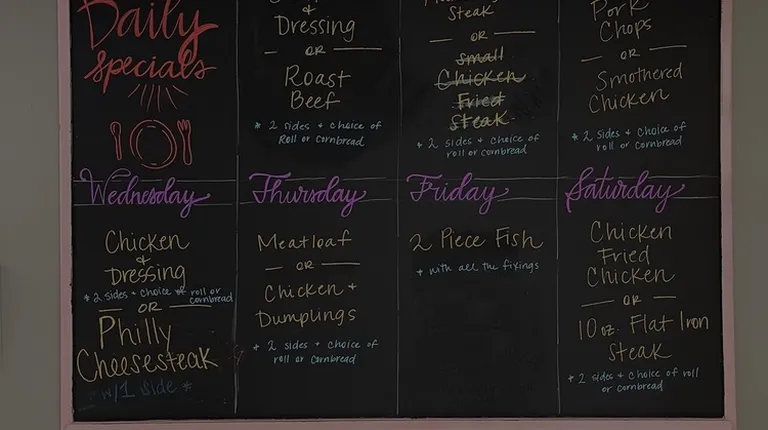 Daily
Specials
&
Dressing
OR
Roast
Beef
* 2 sides + choice of
Roll or cornbread
Steak
OR
Small
Chicken
Fried
Steak
* 2 sides + choice of
roll or cornbread
Pork
Chops
OR
Smothered
Chicken
* 2 sides + choice of
roll or cornbread
Wednesday
Chicken
&
Dressing
* 2 sides + choice of roll or
cornbread
OR
Philly
Cheesesteak
* w/1 side *
Thursday
Meatloaf
OR
Chicken +
Dumplings
* 2 sides + choice of
roll or cornbread
Friday
2 Piece Fish
* with all the fixings
Saturday
Chicken
Fried
Chicken
OR
10 oz. Flat Iron
Steak
* 2 sides + choice of roll
or cornbread